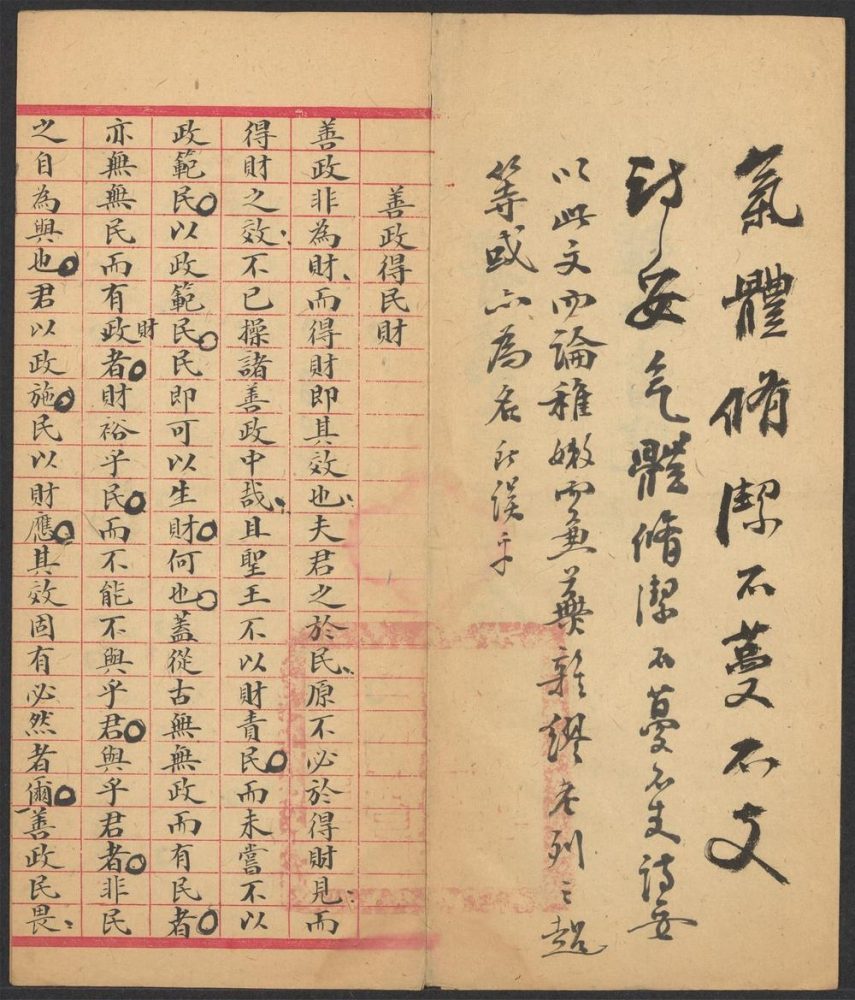 氣體脩潔不蔓不支
詩安气體脩潔不蔓不支詩安
以此文而論稚嫩而兼蕪雜列之超
等或亦為名所誤乎
善政得民財
善政非為財、而得財即其效也、夫君之於民、原不必於得財見、而
得財之效、不已操諸善政中哉、且聖王不以財責民而未嘗不以
政範民以政範民民即可以生財何也蓋從古無無政而有民者
亦無無民而有政財者財裕乎民而不能不與乎君與乎君者非民
之自為與也君以政施民以財應其效固有必然者爾善政民畏、